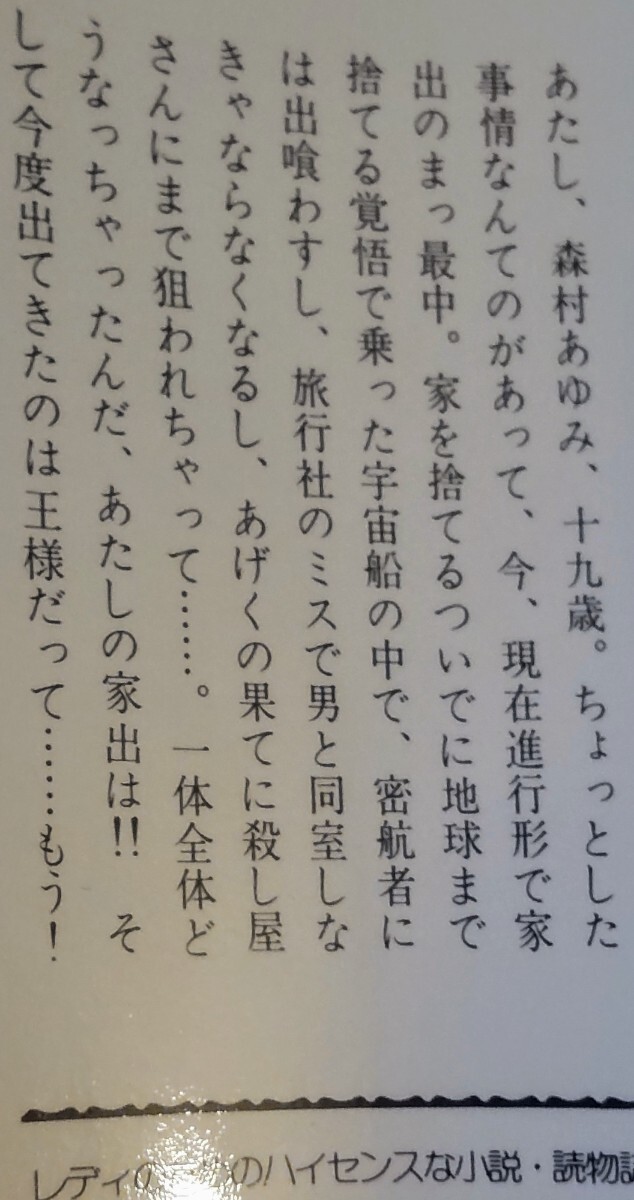 あたし、森村あゆみ、十九歳。ちょっとした
事情なんてのがあって、今、現在進行形で家
出のまっ最中。家を捨てるついでに地球まで
捨てる覚悟で乗った宇宙船の中で、密航者に
は出喰わすし、旅行社のミスで男と同室しな
きゃならなくなるし、あげくの果てに殺し屋
さんにまで狙われちゃって……。一体全体ど
うなっちゃったんだ、あたしの家出は!! そ
して今度出てきたのは王様だって……もう!
レディの のハイセンスな小説・読物